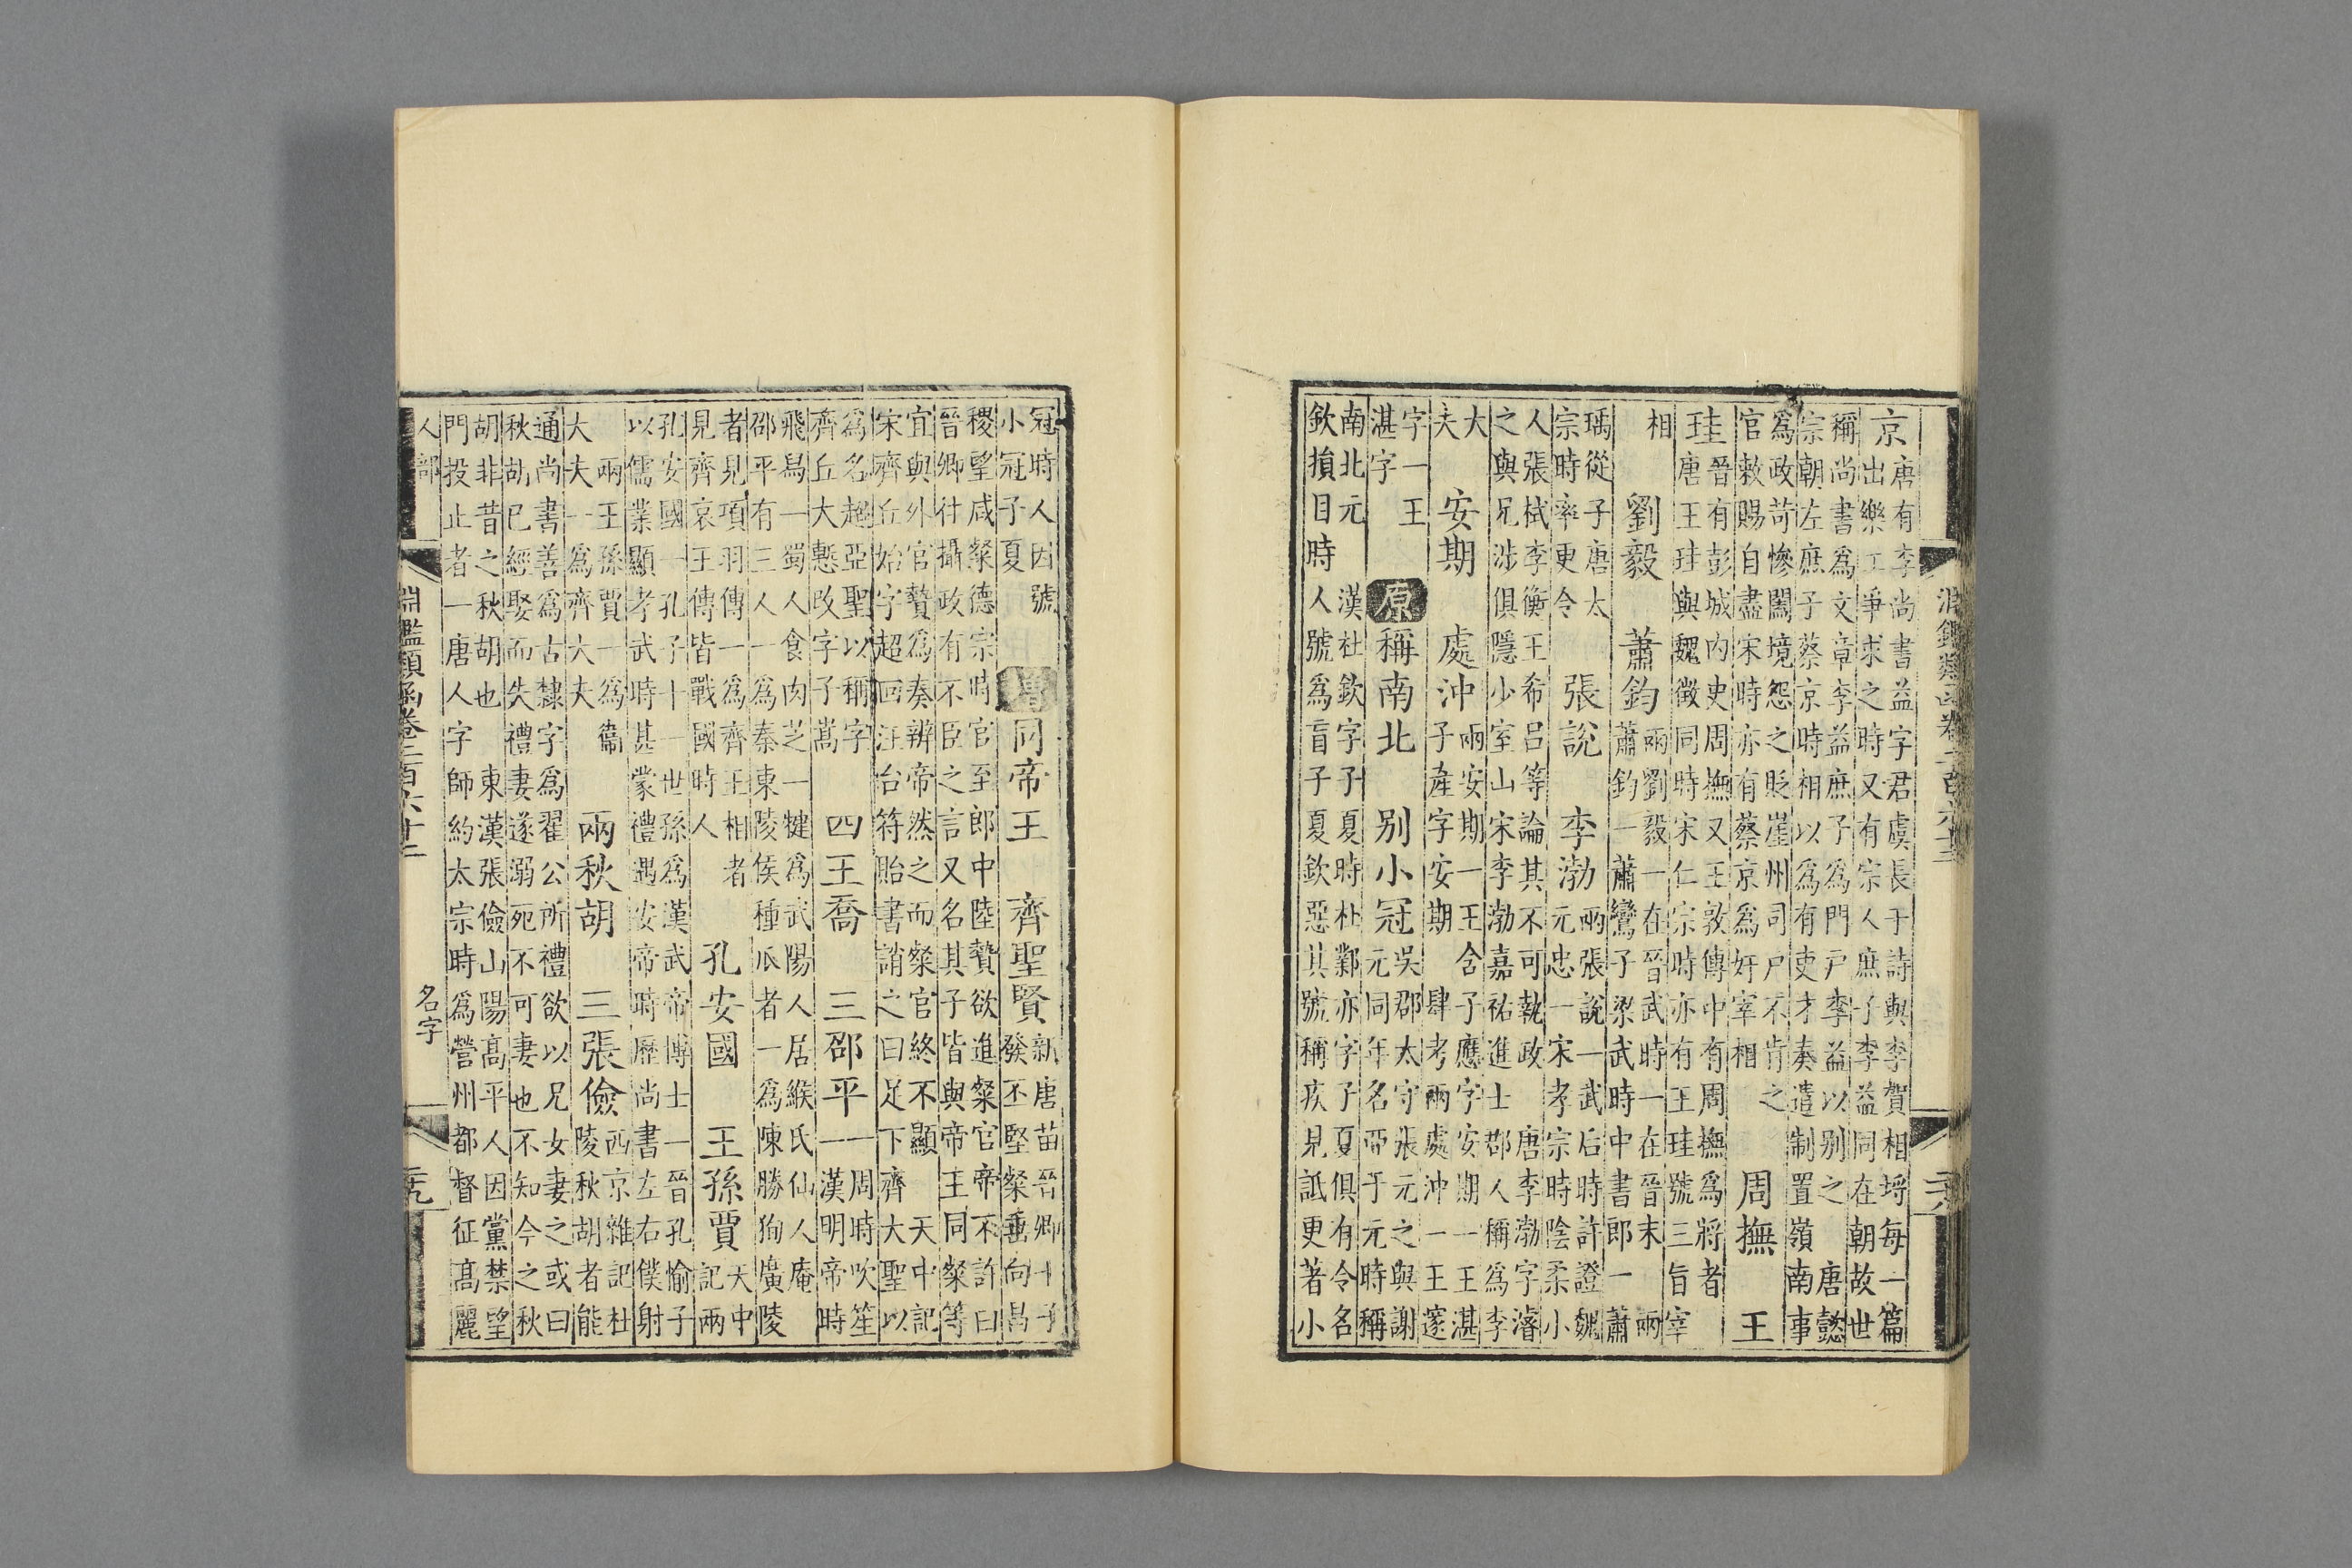 淵鑑類函卷二百六十三
京
唐有李尚書益字君虞長于詩與李賀相埒每一篇
出樂工爭求之時又有宗人庶子李益同在朝故世
稱尚書爲文章李益庶子爲門戶李益以别之 唐懿
宗朝左庶子蔡京時相以爲有吏才奏遣制置嶺南事
爲政苛慘闔境怨之貶崖州司戶不肯之
官敕賜自盡宋時亦有蔡京爲奸宰相
周撫 王
珪
晉有彭城内史周撫又王敦傳中有周撫爲將者
唐王珪與魏徵同時宋仁宗時亦有王珪號三旨宰
相
劉毅 蕭鈞
兩劉毅一在晉武時一在晉末 兩
蕭鈞一蕭鸞子梁武時中書郎一蕭
瑀從子唐太
宗時率更令
張說 李渤
兩張說一武后時許證魏
元忠一宋孝宗時陰柔小
人張栻李衡王希呂等論其不可執政 唐李渤字濬
之與兄涉俱隱少室山宋李渤嘉祐進士郡人稱爲李
大
夫
安期 處沖
兩安期一王含子應字安期一王湛
子產字安期 肆考兩處沖一王邃
字一王
湛字
原
稱南北 别小冠
吳郡太守張元之與謝
元同年名亞于元時稱
南北元 漢杜欽字子夏時杜鄴亦字子夏俱有令名
欽損目時人號爲盲子夏欽惡其號稱疾見詆更著小
冠時人因號
小冠子夏
增
同帝王 齊聖賢
新唐苗晉卿十子
發丕堅粲垂向吕
稷望咸粲德宗時官至郎中陸贄欲進粲官帝不許曰
晉卿往攝政有不臣之言又名其子皆與帝王同粲等
宜與外官贄爲奏辨帝然之而粲官終不顯 天中記
宋齊丘始字超回汪台符貽書誚之曰足下齊大聖以
爲名超亞聖以稱字
齊丘大慙改字子嵩
四王喬 三邵平
一周時吹笙
一漢明帝時
飛舄一蜀人食肉芝一犍爲武陽人居緱氏仙人庵
邵平有三人一爲秦東陵侯種瓜者一爲陳勝狥廣陵
者見項羽傳一爲齊王相者
見齊哀王傳皆戰國時人
孔安國 王孫賈
天中
記兩
孔安國一孔子十一世孫爲漢武帝博士一晉孔愉子
以儒業顯孝武時甚蒙禮遇安帝時歷尚書左右僕射
兩王孫賈一爲衞
大夫一爲齊大夫
兩秋胡 三張儉
西京雜記杜
陵秋胡者能
通尚書善爲古隸字爲翟公所禮欲以兄女妻之或曰
秋胡已經娶而失禮妻遂溺死不可妻也不知今之秋
胡非昔之秋胡也 東漢張儉山陽高平人因黨禁望
門投止者一唐人字師約太宗時爲營州都督征高麗
人部
淵鑑類函卷二百六十三
名字